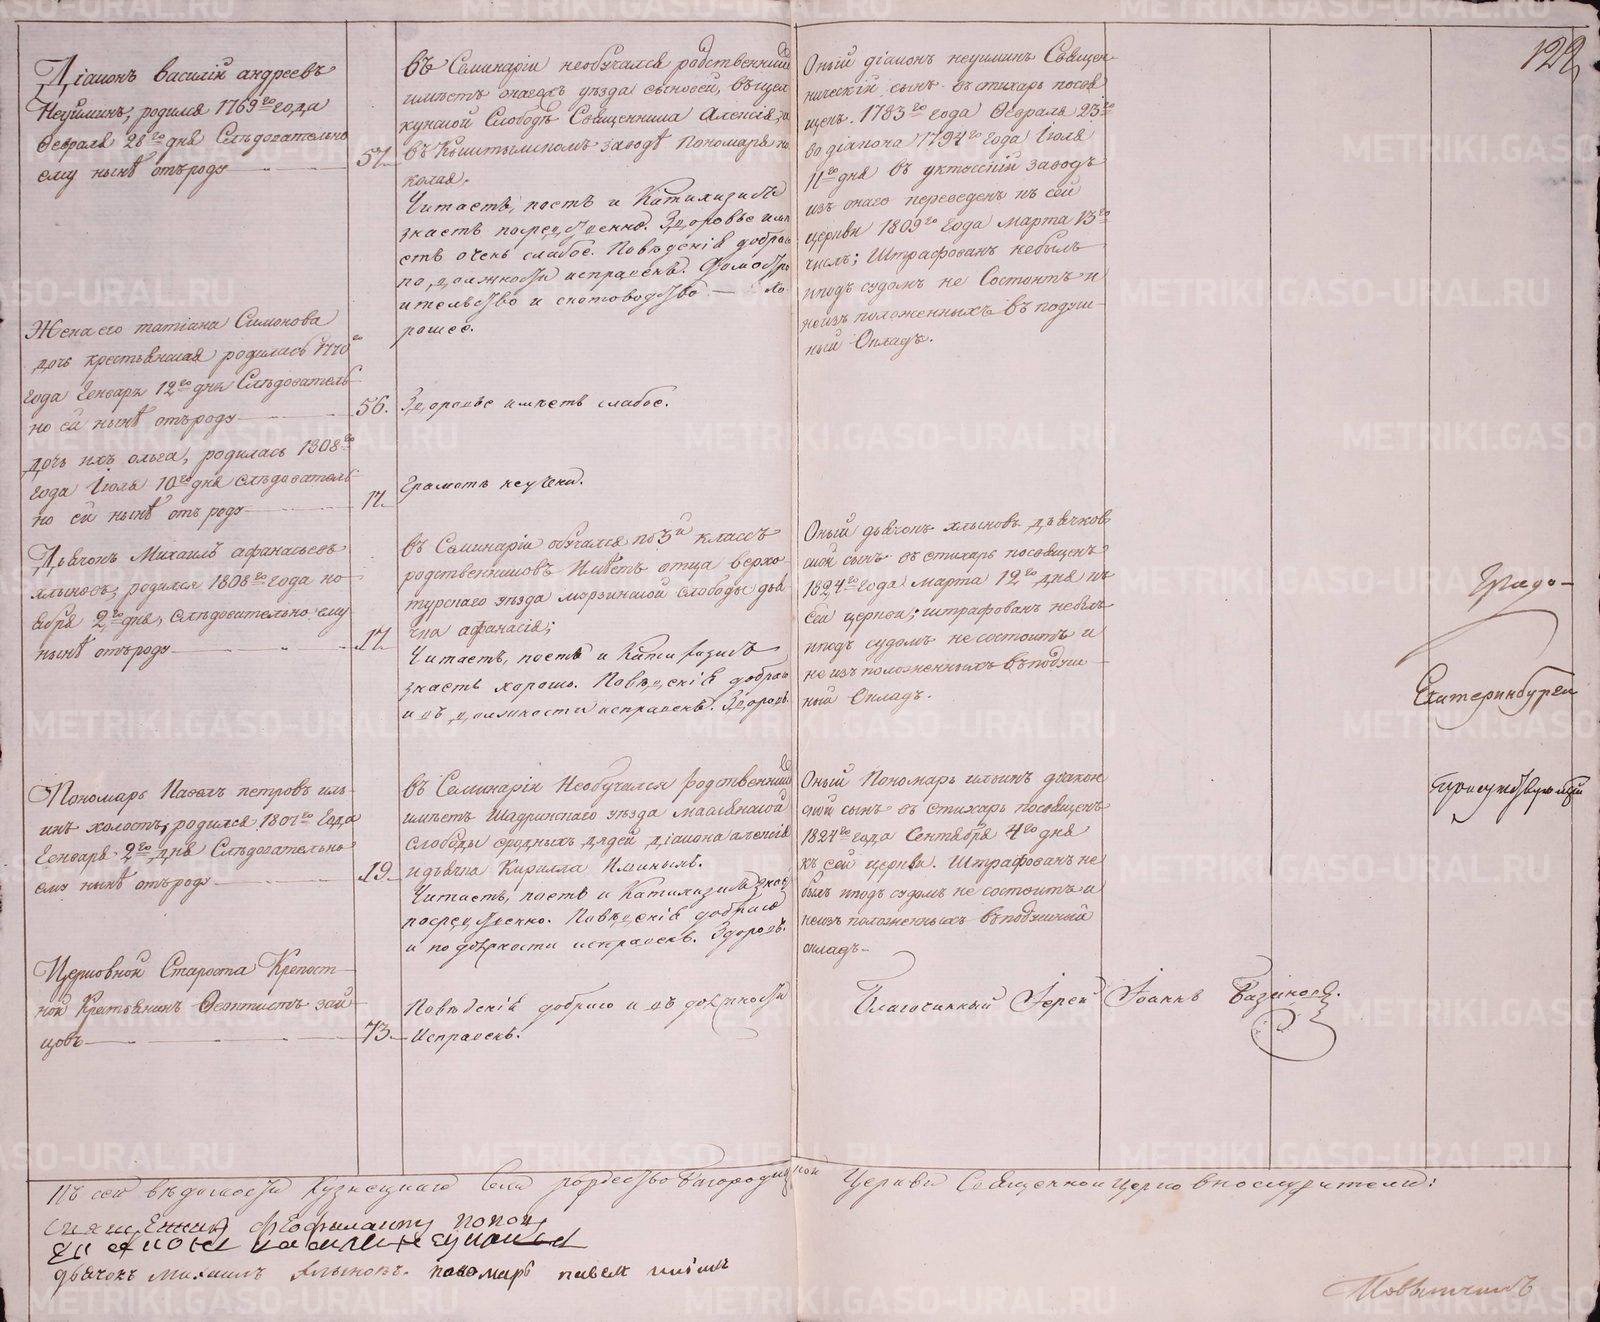 122
Діаконъ василій андреевъ
Неуйминъ, родился 1769го года
Февраля 28го дня Слѣдовательно
ему нынѣ отъ роду
57.
въ Семинаріи необучался родственников
имѣетъ онагожъ уѣзда сыновей, въ
кунской Слободѣ Священника Алексія, и
въ Кыштымскомъ заводѣ Пономаря ни-
колая.
Читаетъ, поетъ и Катихизисъ
знаетъ посредственно. Здоровье имѣ-
етъ очень слабое. Поведенія добраго
по должности исправенъ. Домостро-
ительство и скотоводство — хо-
рошее.
Оный діаконъ неуйминъ Священ-
ническій сынъ въ стихарь посвя-
щенъ 1783го года Февраля 25го
во діакона 1794го года Іюля
11го дня въ уктусскій заводъ
изъ онаго переведенъ къ сей
церкви 1809го года марта 13го
числ; Штрафованъ небылъ
иподъ судомъ не Состоитъ и
неизъ положенныхъ въ подуш-
ный Окладъ.
Жена его татіана Симонова
дочь крестьянская родилась 1770го
года Генваря 12го дня Слѣдователь-
но ей нынѣ отъ роду
56.
Здоровье имѣетъ слабое.
дочь ихъ ольга, родилась 1808го
года Іюля 10го дня слѣдователь-
но ей нынѣ отъ роду
17.
Грамотѣ неучена.
Дьячокъ Михаилъ афанасьевъ
хлыновъ, родился 1808го года но-
ября 2го дня, Слѣдовательно ему
нынѣ отъ роду
17.
въ Семинаріи обучался по 3й классъ
родственниковъ Имѣетъ отца верхо-
турскаго уѣзда мурзинской слободы дья-
чка афанасія;
Читаетъ, поетъ и Катихизисъ
знаетъ хорошо. Поведенія добраго
и въ должности исправенъ. Здоровъ.
Оный дьячокъ хлыновъ дьячков-
ской сынъ въ стихарь посвященъ
1824го года марта 12го дня къ
сей церкви; штрафованъ небылъ
иподъ судомъ не состоитъ и
не изъ положенныхъ въ подуш-
ный Окладъ.
Градо-
Екатеринбурга
Пономарь Павелъ петровъ иль-
инъ холостъ, родился 1807го года
Генваря 2го дня Слѣдовательно
ему нынѣ отъ роду
19.
въ Семинаріи Необучался родственниковъ
имѣетъ Шадринскаго уѣзда маслянской
слободы сродныхъ дядей діакона алексія
идьячка Кирилла Ильиныхъ.
Читаетъ, поетъ и Катихизисъ знаетъ
посредственно. Поведенія добраго
и по должности исправенъ. Здоровъ.
Оный Пономарь ильинъ діакон-
ской сынъ въ стихарь посвященъ
1824го года Сентября 4го дня
къ сей церкви. Штрафованъ не
былъ иподъ судомъ не состоитъ и
неизъ положенныхъ въ подушный
окладъ.
Церковной Староста Крепост-
ной Крестьянинъ Феоктистъ зай-
цовъ
73.
Поведенія добраго и въ должности
Исправенъ.
Благочинный Іерей Іоаннъ
Къ сей вѣдомости Кузнецкаго Села рождество Богородицкой Церкви Священноицерковнослужители:
священникъ Феофилактъ попов
діаконъ василей неуйминъ
дьячокъ михаилъ Хлыновъ. пономарь павел ильин
Повытчикъ